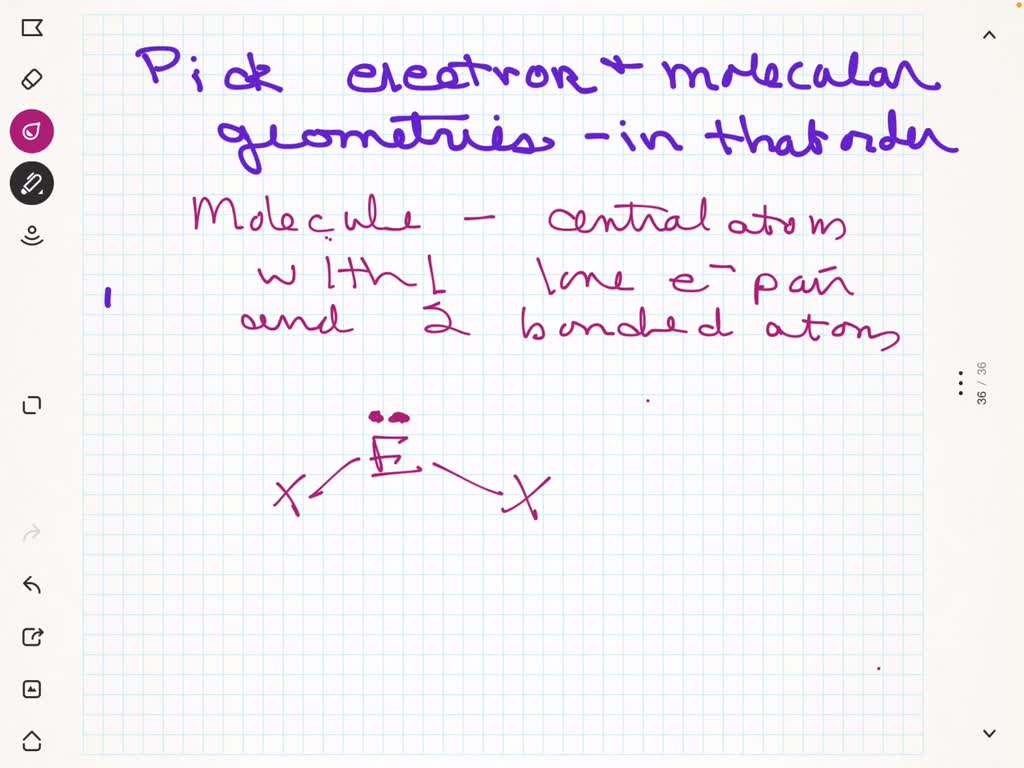 Pick electron + molecular
geometries - in that order
Molecule - central atom
with 1 lone e⁻ pair
and 2 bonded atoms
E
X X
36 / 36